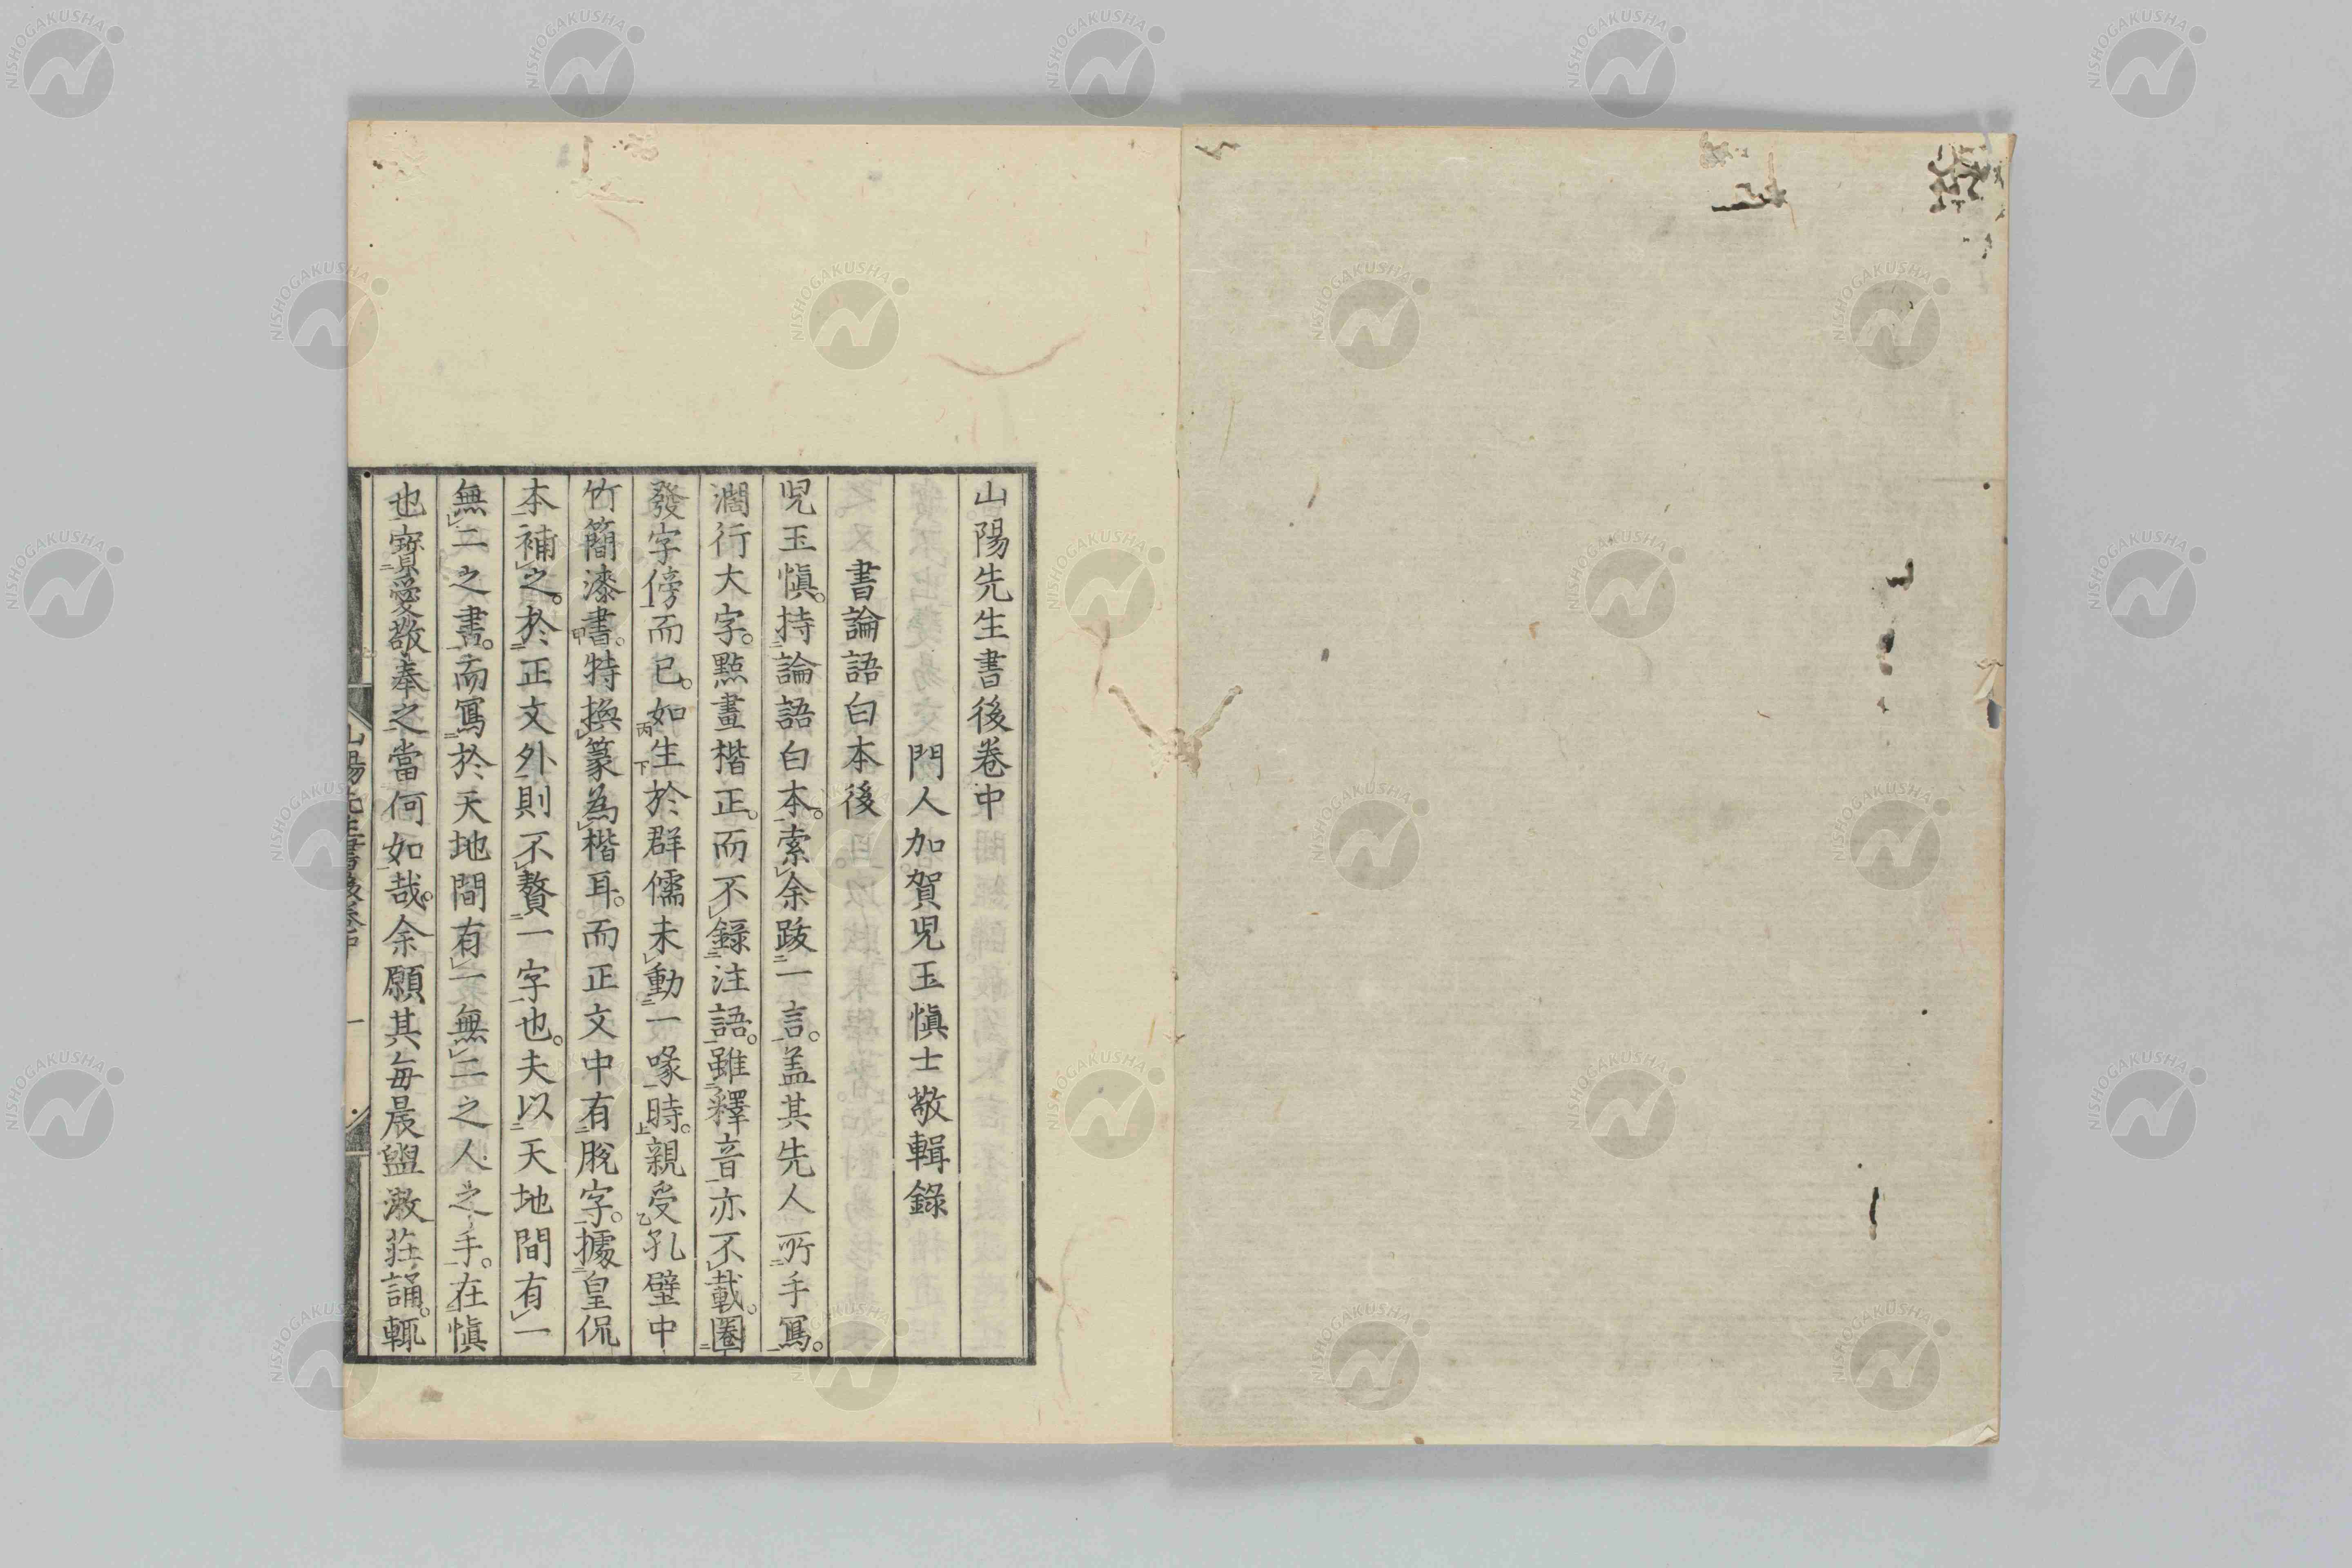 山陽先生書後卷中
門人加賀児玉愼士敬輯錄
書論語白本後
児玉愼。持論語白本。索余跋一言。盖其先人所手寫。
濶行大字。點畫楷正。而不錄注語。雖釋音亦不載。圈
發字傍而已。如生於群儒未動一喙時。親受孔壁中
竹簡漆書。特換篆為楷耳。而正文中有脫字。據皇侃
本補之。於正文外則不贅一字也。夫以天地間有一
無二之書。而寫於天地間有一無二之人之手。在愼
也寶愛敬奉之當何如哉。余願其每晨盥漱莊誦。輒
山陽先生書後卷中 一
NISHOGAKUSHA